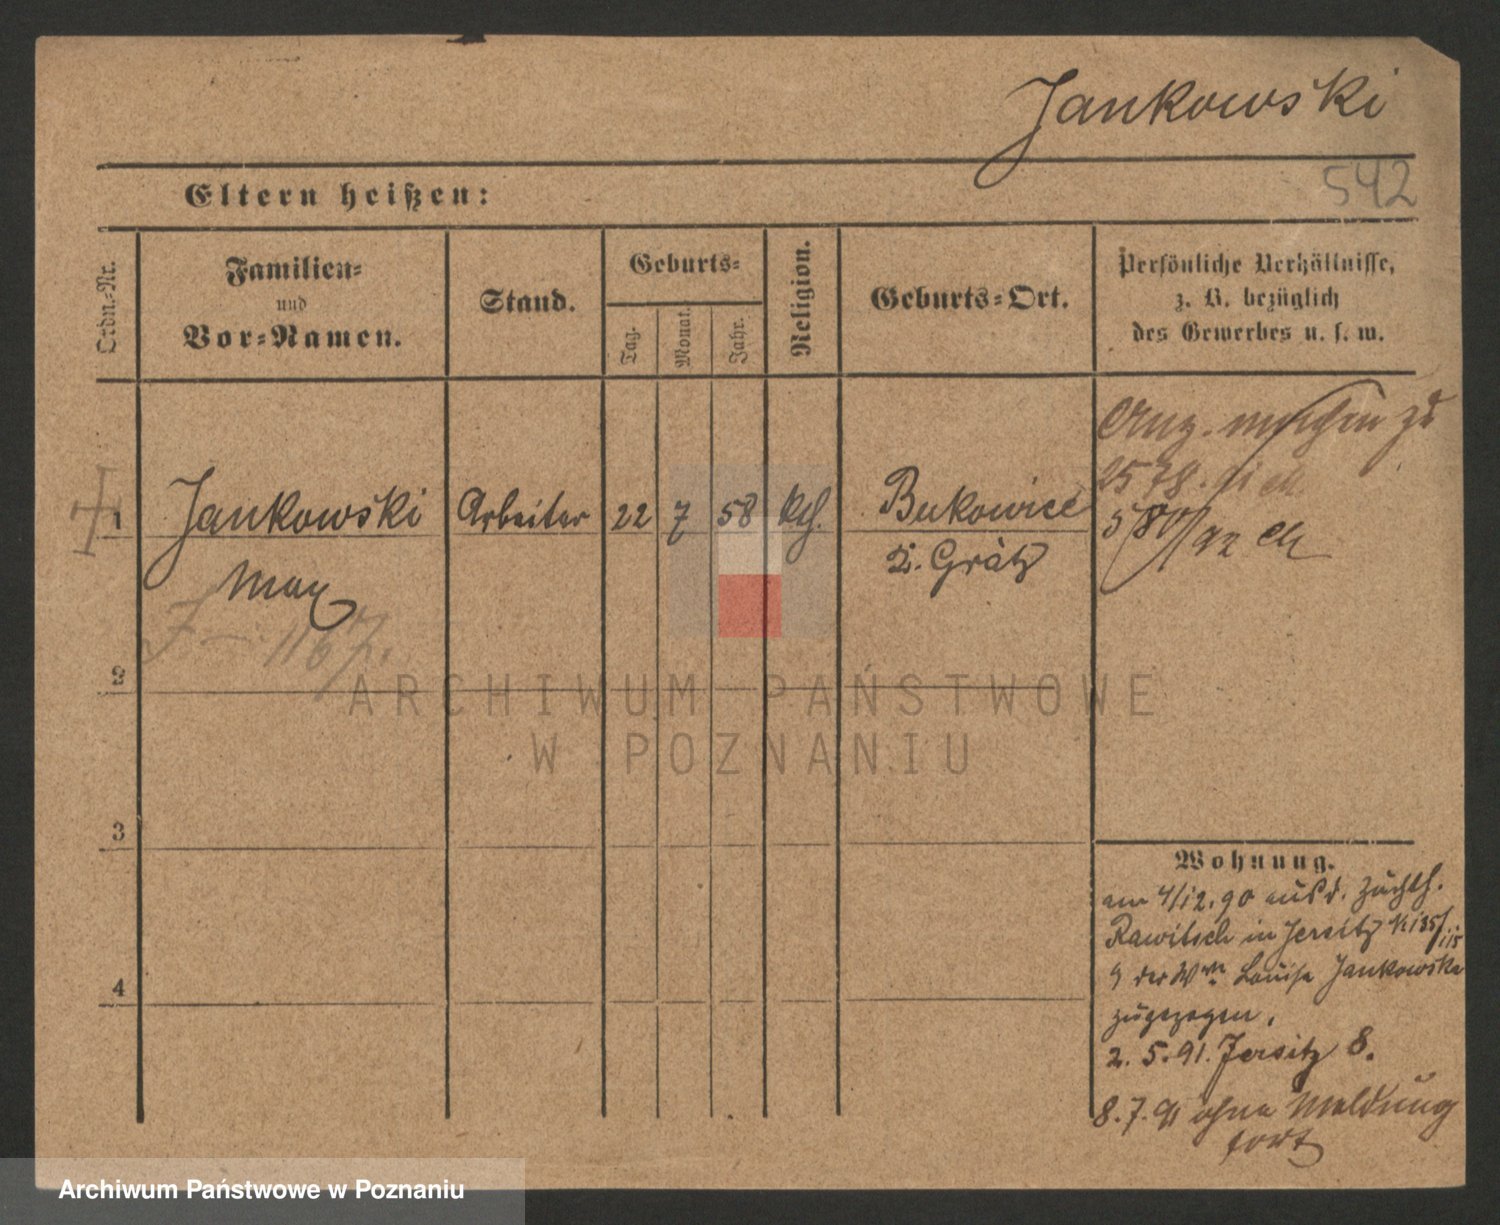 Jankowski
542
Eltern heißen:
Ordn.-Nr.
Familien-
und
Vor-Namen.
Stand.
Geburts-
Tag.
Monat.
Jahr.
Religion.
Geburts-Ort.
Persönliche Verhältnisse,
z. B. bezüglich
des Gewerbes u. s. w.
1
Jankowski
Max
Arbeiter
22
7
58
kth.
Bukowice
Grätz
zu
580/92
1167.
2
3
4
Wohnung.
am 4/12.90 aus d. Zuchth.
Rawitsch in Jersitz
Louise Jankowska
zugezogen.
2. 5. 91. Jersitz 8.
8. 7. 91 ohne Meldung
fort
ARCHIWUM PAŃSTWOWE
W POZNANIU
Archiwum Państwowe w Poznaniu